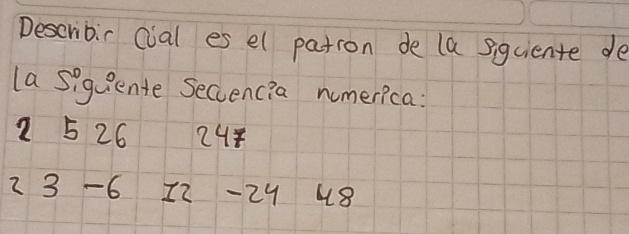 Describir Cual es el patron de la siguiente de
la siguiente Secuencia numerica:
2 5 26 247
2 3 -6 12 -24 48